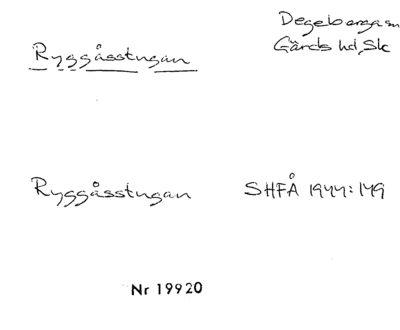 Degeberga sn
Gärds hd, Sk
Ryggåsstugan
Ryggåsstugan SHFÅ 1944:149
Nr 19920